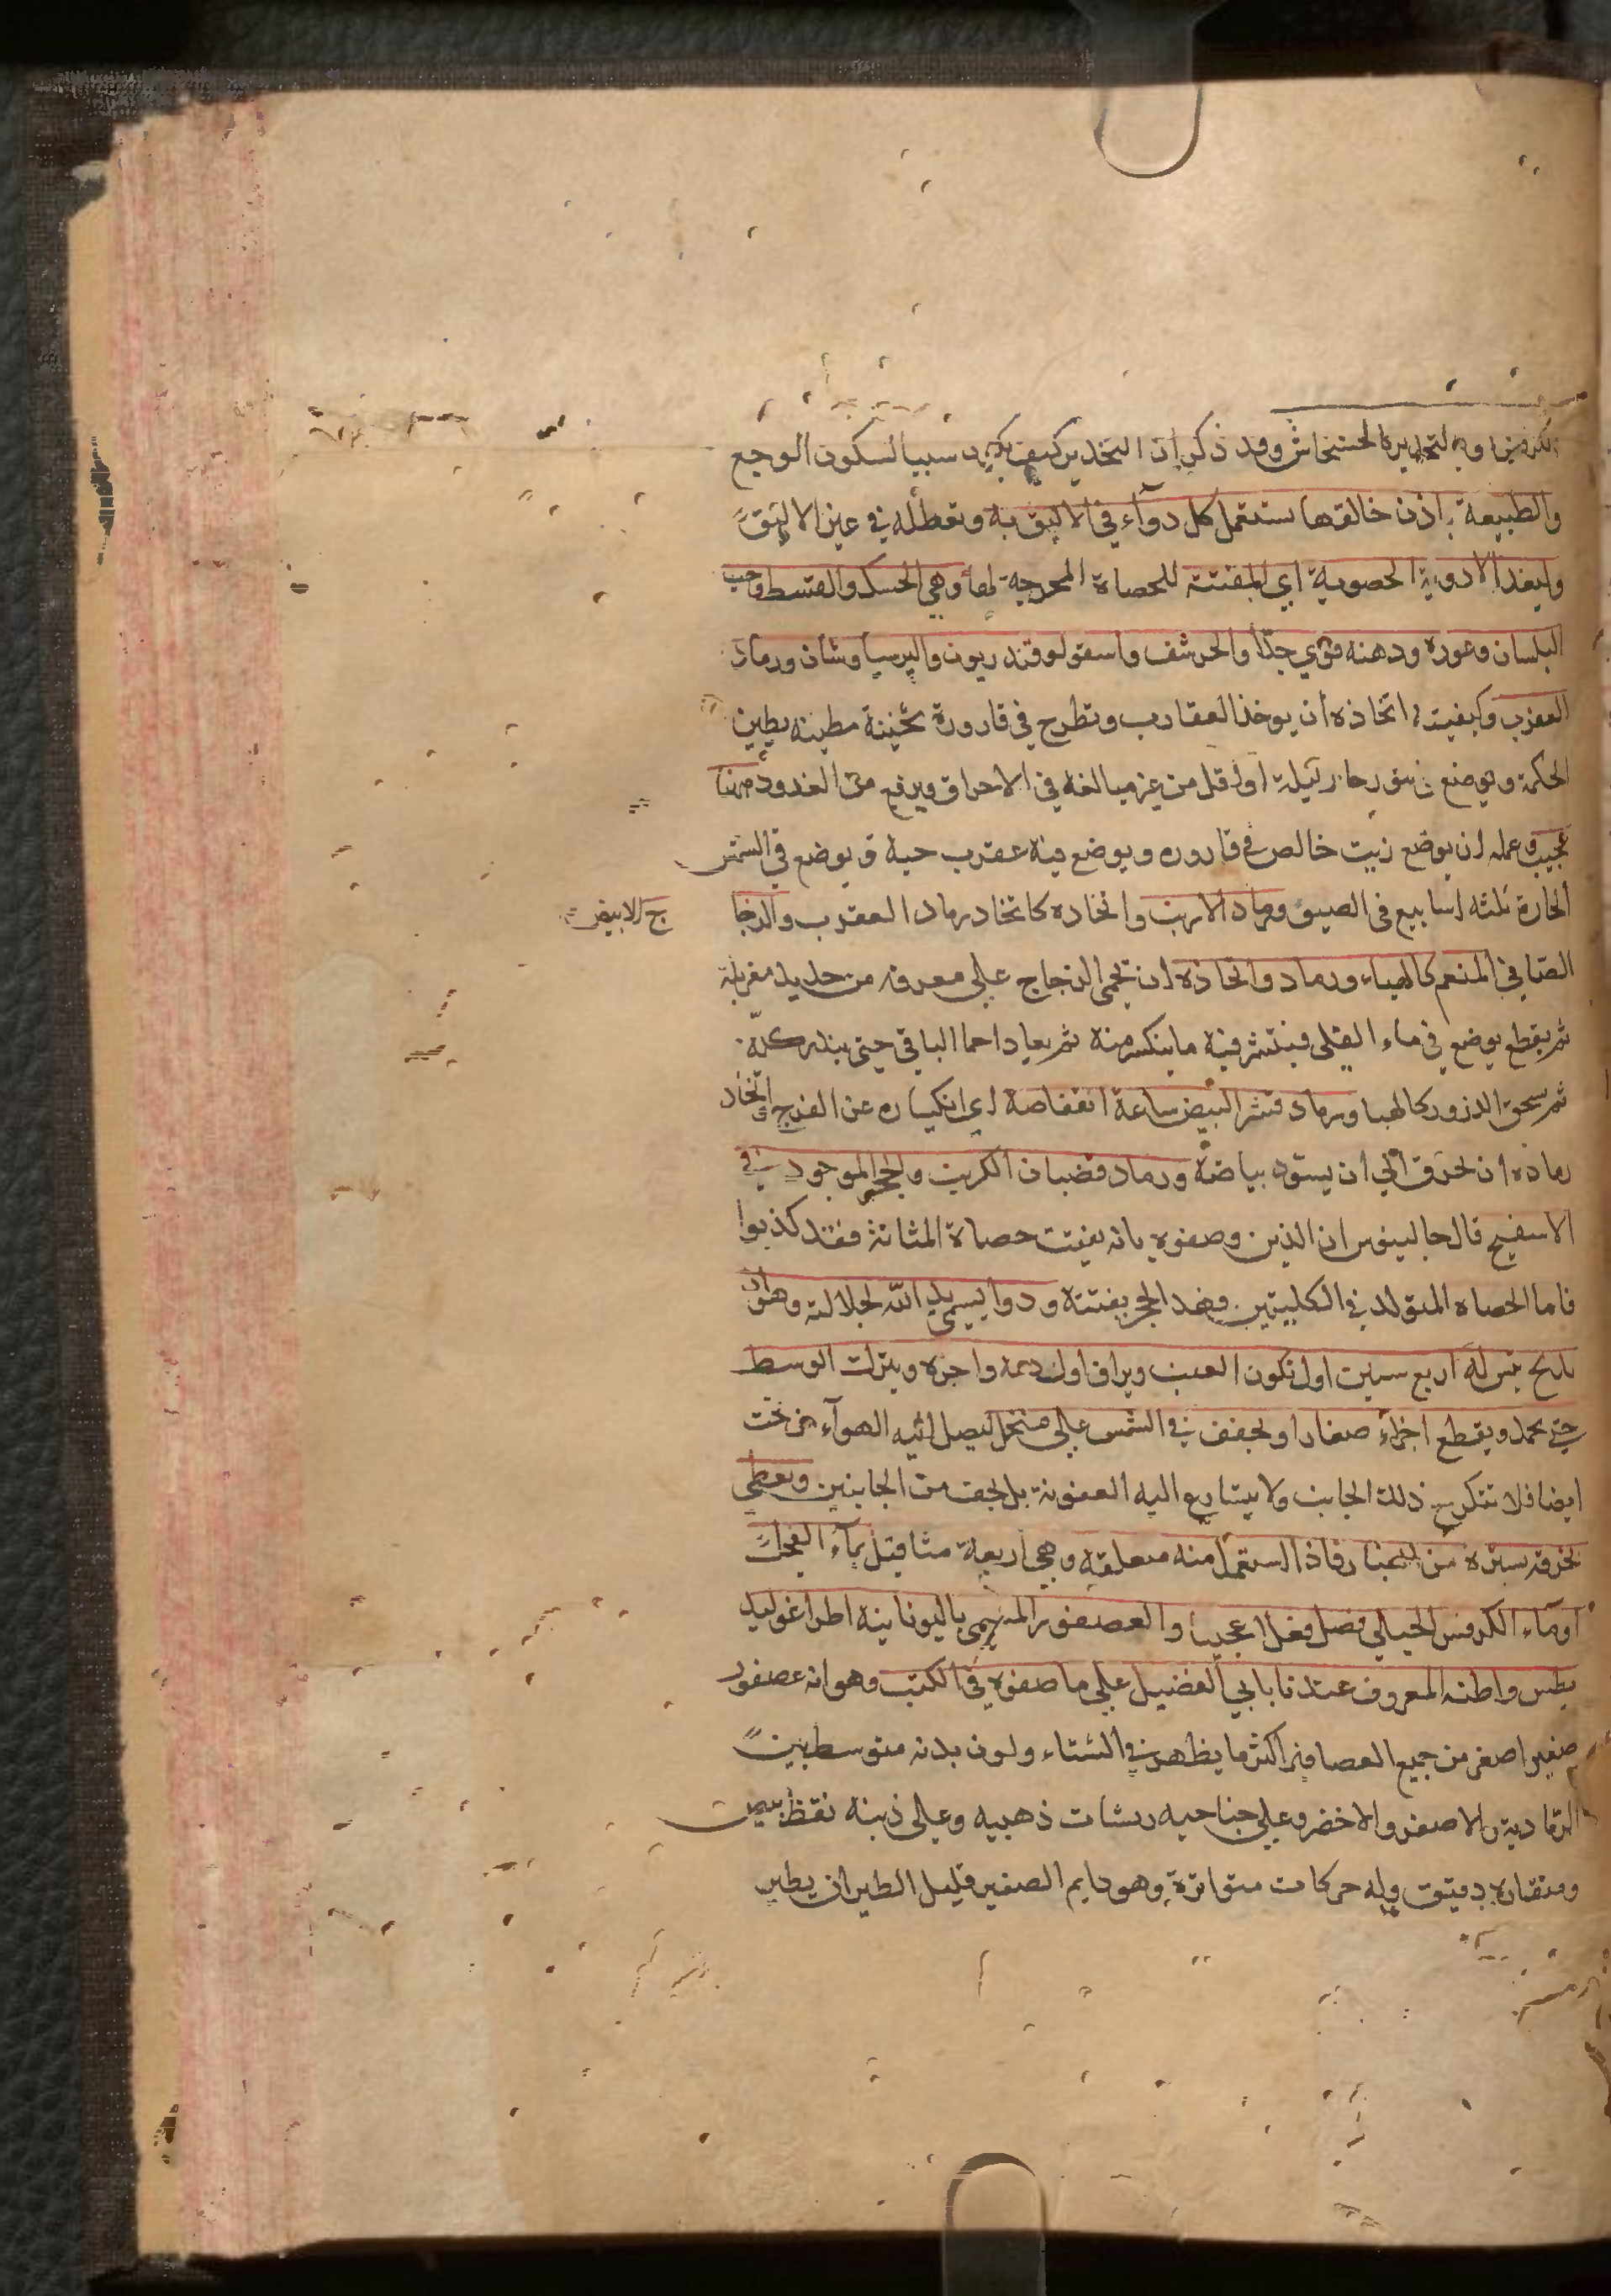 الكرفس او التخديره الخشخاش وقد ذكر ان التخدير كيف يكون سببا لسكون الوجع
والطبيعة باذن خالقها تستعمل كل دوآء في الاليق به وتعطله في غير الاليق
وليغذ الادوية الحصوية اي المفتتة للحصاة المخرجة لها وهي الحسك والقسط وحب
البلسان وعوده ودهنه قوي جدا والحرشف واسقولوقندريون والپرسياوشان ورماد
العقرب وكيفيت اتخاذه أن يوخذ العقارب وتطرح في قارورة ثخينة مطينه بطين
الحكمة ويوضع في تنور حار ليلة او اقل من غير مبالغه في الاحراق ويرفع من الغدو دهنها
عجيب وعمله ان يوضع زيت خالص في قاروره ويوضع فيه عقرب حية ويوضع في الشمس
الحارة ثلثه اسابيع في الصيف ورماد الارنب واتخاده كاتخاد رماد العقرب والزجا
ج الابيض
الصافي المنعم كالهباء ورماد واتخاذه ان تحمى الزجاج على معرفه من حديد مغربلة
ثم يقطع يوضع في ماء القلى فينتثر فيه ما ينكسر منه ثم يعاد احما الباقي حتى يندر كله
ثم يسحق الذرور كالهبا ورماد قشر البيض ساعة انقفاصه اي انكساره عن الفرج اتخاد
رماده ان تحرق الي ان يسود بياضه ورماد قضبان الكرنب والحجر الموجود في
الاسفنج قال جالينوس ان الذين وصفوه بانه يفتت حصاة المثانة فقد كذبوا
فاما الحصاه المتولد في الكليتين فهذا الحجر يفتته ودوا يسمى يد الله لجلالته وهو ان
يذبح تيس له اربع سنين اول تكون العنب ويراق اول دمه واخره ويترك الوسط
حتى يجمد ويقطع اجزاء صغارا ويجفف في الشمس على منخل ليصل اليه الهوآء من تحت
ايضا فلا تتكرج ذلك الجانب ولا يتسارع اليه العفونة بل يجف من الجانبين ويغطى
بخرقه ستره من الغبار فاذا استعمل منه ملعقه وهي اربعة مثاقيل بماء الفجل
اوماء الكرفس الجبلي فصل فعلا عجيبا والعصفور المسمى باليونانية اطراغوليد
يطس واظنه المعروف عندنا بابي الفضيل على ما صفوه في الكتب وهو انه عصفور
صغير اصغر من جميع العصافير اكثر ما يظهر في الشتاء ولون بدنه متوسط بين
الرمادية والاصفر والاخضر وعلى جناحيه ريشات ذهبيه وعلى ذنبه نقط بيض
ومنقاره دقيق وله حركات متواترة وهو دايم الصفير قليل الطيران يطير